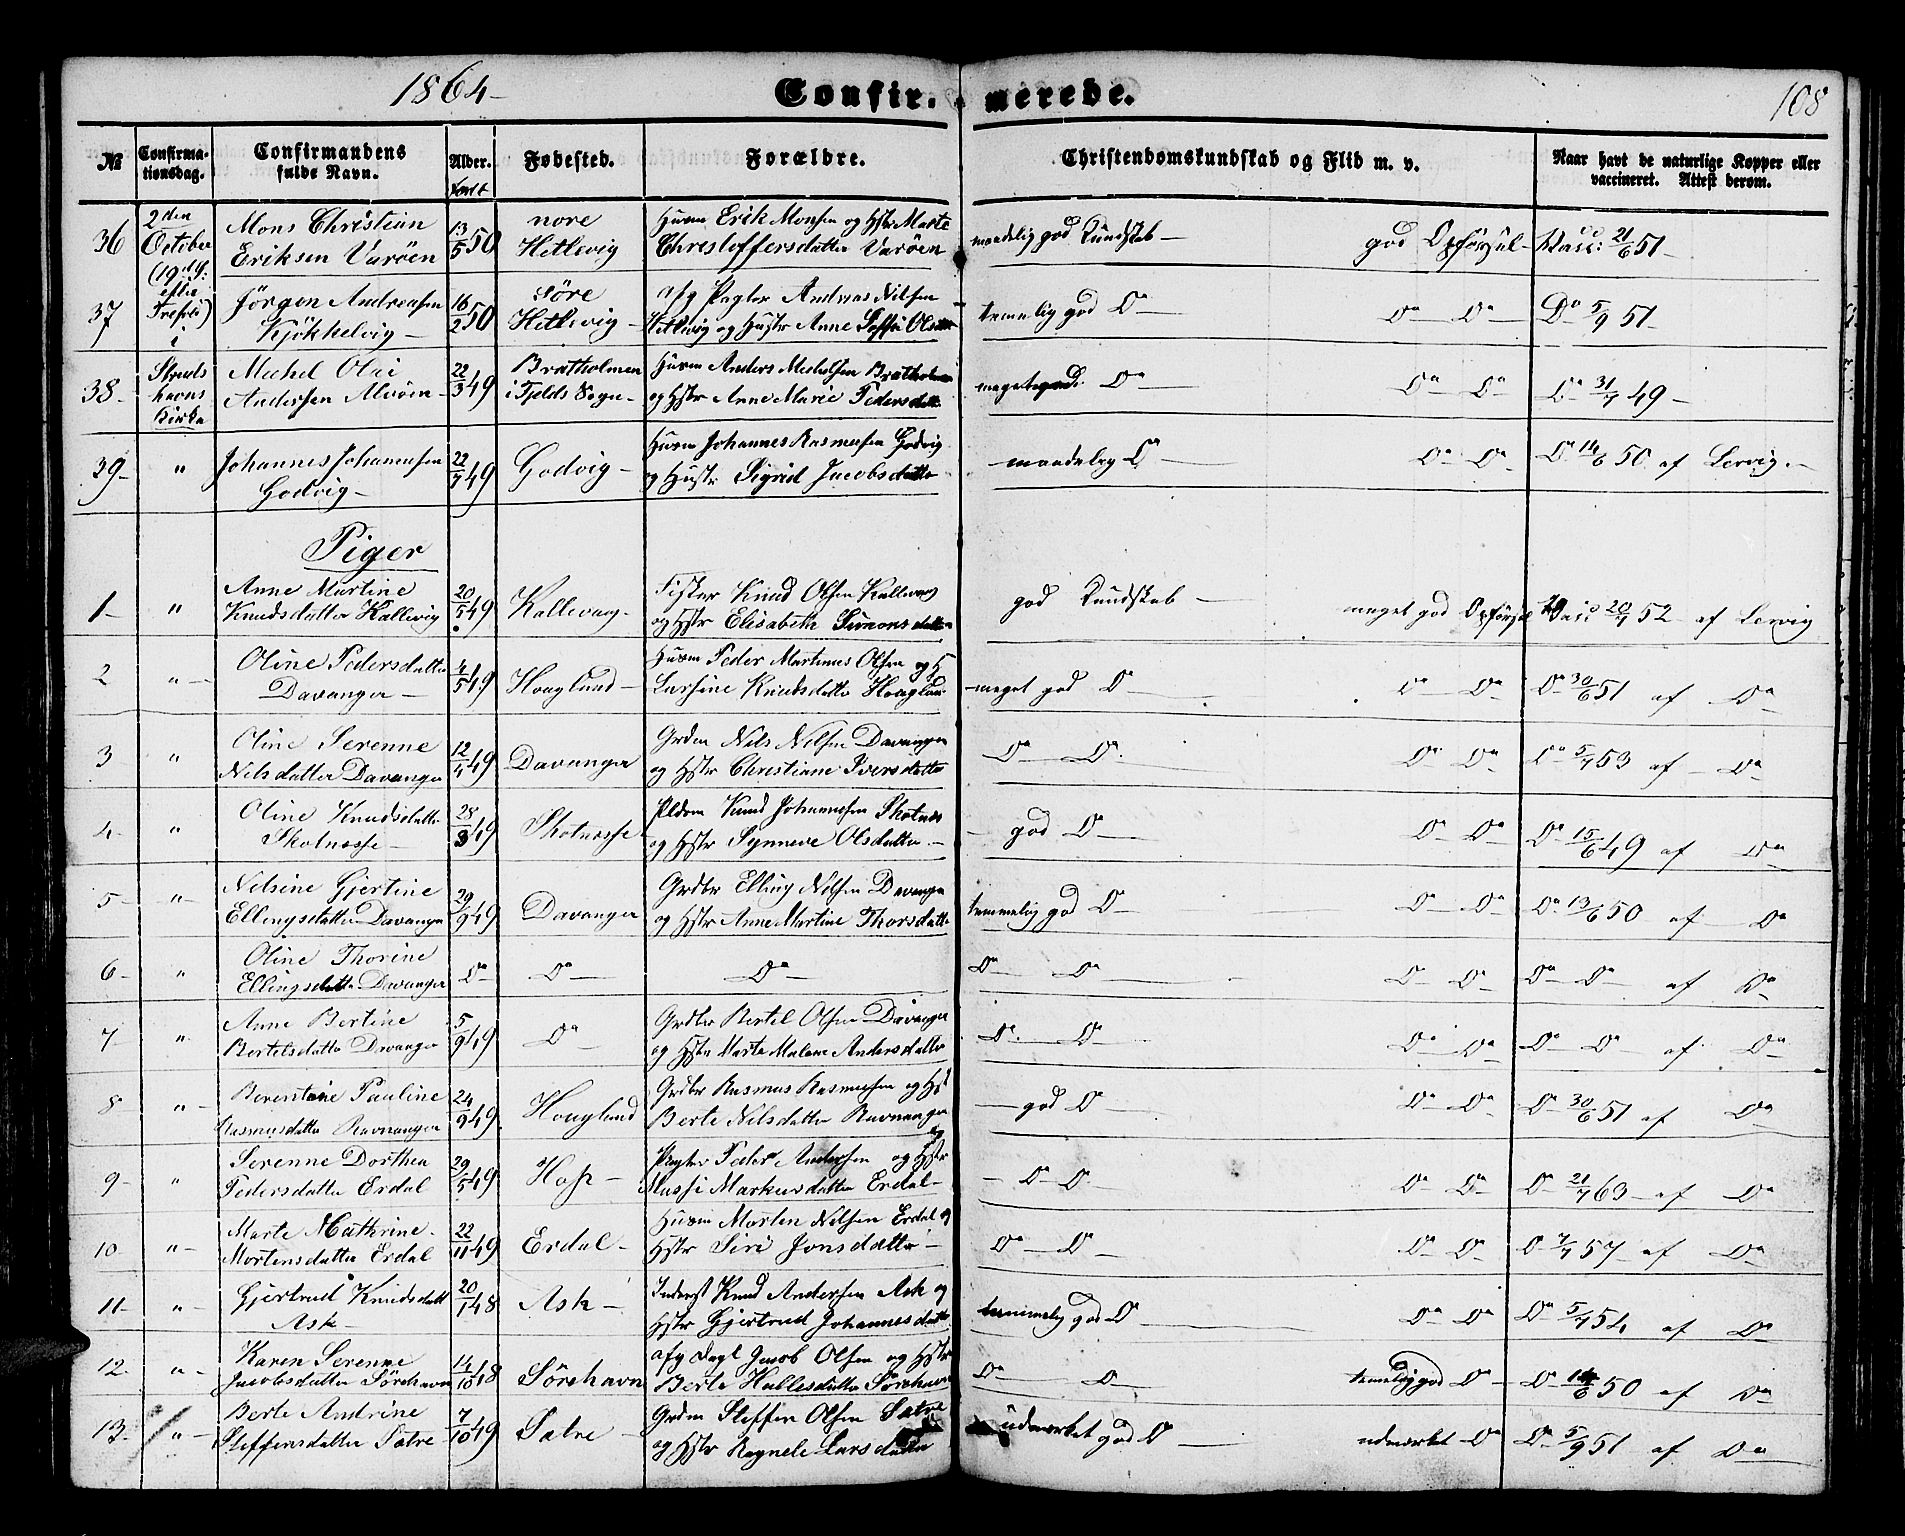 1864-
Confir-
merede.
108
№
Confirma-
tionsdag.
Confirmandens
fulde Navn.
Alder.
født
Fødested.
Forældre.
Christendomskundskab og Flid m. v.
Naar havt de naturlige Kopper eller
vaccineret. Attest derom.
36
2den
October
(19d S.
efter
Trefold)
i
Mons Christian
Eriksen Varöen
13/5 50
nore
Hetlevig
Husm Erik Monsen og Hstr Marte
Christoffersdatter Varöen
maadelig god Kundskab-
god Opførsel-
Vacc: 21/6 51-
37
Jörgen Andreasen
Kjökkelvig-
16/2 50
söre
Hetlevig-
afg Pagter Andreas Nilsen
Hetlevig og Hustr Anne Olsdtr
temmelig god Do-
Do- Do-
Do 5/9 51-
38-
Struds
havns
Kirke
Michel Olai
Andersen Alvöen-
22/3 49
Bratholmen
i Fjelds Sogn-
Husm Anders Michelsen Bratholmen
og Hstr Anne Marie Pedersdatt
meget god Do-
Do- Do-
Do 31/7 49-
39-
"
Johannes Johannesen
Godvig-
22/7 49
Godvig-
Husm Johannes Rasmusen Godvig
og Hustr Sigrid Jacobsdatter
maadelig Do-
Do- Do-
Do 14/6 50 af Lervig.-
Piger
1-
"
Anne Martine
Knudsdatter Kallevig
20/5 49
Kallevaag-
Fisker Knud Olsen Kallevaag
og Hstr Elisabeth Simonsdatter
god Kundskab-
meget god Opførsel
Vacc 20/7 52 af Lervig
2
"-
Oline Pedersdatter
Davanger-
4/5 49
Hoaglund-
Husm Peder Martinus Olsen og H
Larsine Knudsdatter Hoaglund
-meget god Do-
Do- Do-
Do 30/6 51 af Do
3
"
Oline Serenne
Nilsdatter Davanger
12/4 49
Davanger
Grdm Nils Nilsen Davanger
og Hstr Christiane Iversdatter
Do- Do.
Do Do-
Do 5/7 53 af - Do
4-
"
Oline Knudsdatter
Skotnæsse-
28/3 49
Skotnæsse
Knud Johannesen Skotnæs
og Hstr Synneve Olsdatter-
- god Do-
Do- Do-
Do 15/6 49 af Do
5-
"-
Nilsine Gjertine
Ellingsdatter Davanger
29/9 49
Davanger
Grdbr Elling Nilsen Davanger
og Hstr Anne Martine Thorsdatter
temmelig god Do-
Do- Do-
Do. 13/6 50 af - Do
6-
"
Oline Thorine
Ellingsdatter Davanger
Do-
Do-
Do-
Do- Do-
Do- Do-
Do- Do- af Do
7-
"
Anne Bertine
Bertelsdatter Davanger
5/9 49
Do-
Grdbr Bertel Olsen Davanger
og Hstr Marte Malene Andersdatter
Do. Do-
Do- Do-
Do- Do- af Do
8
"-
Berentine Pauline
Rasmusdatter Ravnanger
24/9 49.
Hoaglund
Grdbr Rasmus Rasmusen og Hst
Berte Nilsdatter Ravnanger
- god Do-
Do- Do-
Do- 30/6 51 af Do
9-
"
Serenne Dorthea
Pedersdatter Erdal
29/5 49
Hop-
Pagter Peder Andersen og Hstr
Markusdatter Erdal-
- Do- Do-
Do- Do-
Do- 21/7 63- af Do
10
"-
Marte Mathrine-
Mortensdatter Erdal
22/11 49
Erdal-
Husm Morten Nilsen Erdal og
Hstr Siri Jonsdatter-
Do- Do-
Do- Do-
Do 7/7 57- af Do
11-
"-
Gjertrud Knudsdatt
Ask-
20/1 48
Ask-
Inderst Knud Andersen Ask og
Hstr Gjertrud Johannesdatter
temmelig god Do
Do- Do
Do 5/7 54 af Do
12.
"-
Karen Serenne
Jacobsdatter Sörehavn
14/10 48
Sörehavn
afg Jacob Olsen og Hstr
Berte Hallesdatter Sörehavn
Do- Do
temelig god Do-
Do- 14/6 50 af Do
13-
"-
Berte Andrine
Steffensdatter Sætre-
7/10 49
Sætre-
Grdm Steffen Olsen Sætre
og Hstr Ragnele Larsdatter
udmærket god Do-
udmærket Do
Do- 5/9 51 af Do